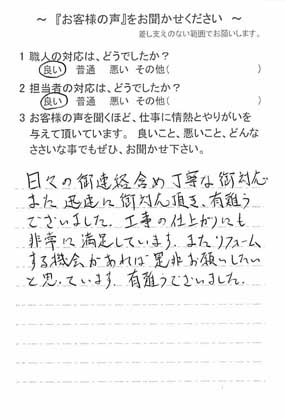 ～『お客様の声』をお聞かせください～
差し支えのない範囲でお願いします。
1 職人の対応は、どうでしたか?
良い 普通 悪い その他( )
2 担当者の対応は、どうでしたか?
良い 普通 悪い その他( )
3 お客様の声を聞くほど、仕事に情熱とやりがいを
与えて頂いています。 良いこと、悪いこと、どんな
ささいな事でもぜひ、お聞かせ下さい。
日々の御連絡含め丁寧な御対応
また 迅速に御対応頂き、有難う
ございました。工事の仕上がりにも
非常に満足しています。またリフォーム
する機会があれば是非お願いしたい
と思っています。有難うございました。